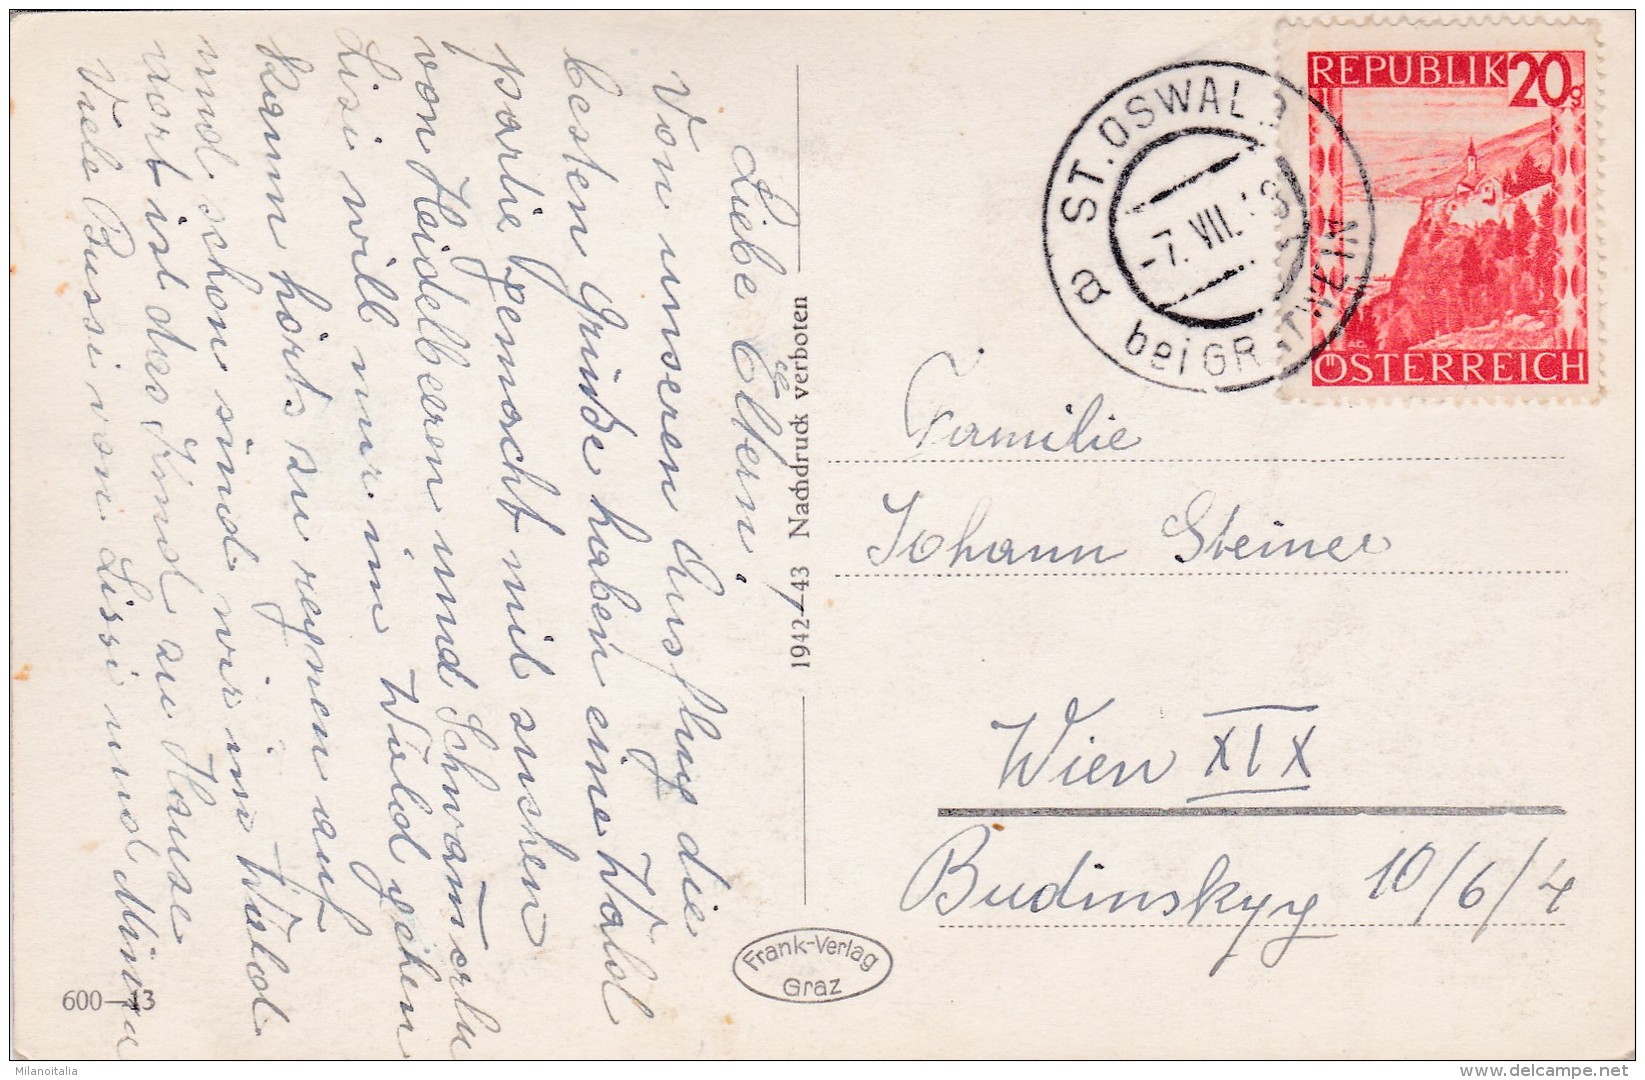 Liebe Eltern!
Von unseren Ausflug die
besten Grüße haben eine Wald
partie gemacht mit suchen
von Heidelbeeren und Schwammerln
Lisi will nur im Wald gehen
kann hörts zu regnen auf
und schon sind wir im Wald
dort ist das Kind zu Hause
Viele Bussi von Lissi und
600—43
1942—43 Nachdruck verboten
Frank-Verlag
Graz
ST. OSWALD
a bei GRATWEIN
-7. VII. 48
REPUBLIK 20g
ÖSTERREICH
Familie
Johann Steiner
Wien XIX
Budinskyg 10/6/4
Milanoitalia